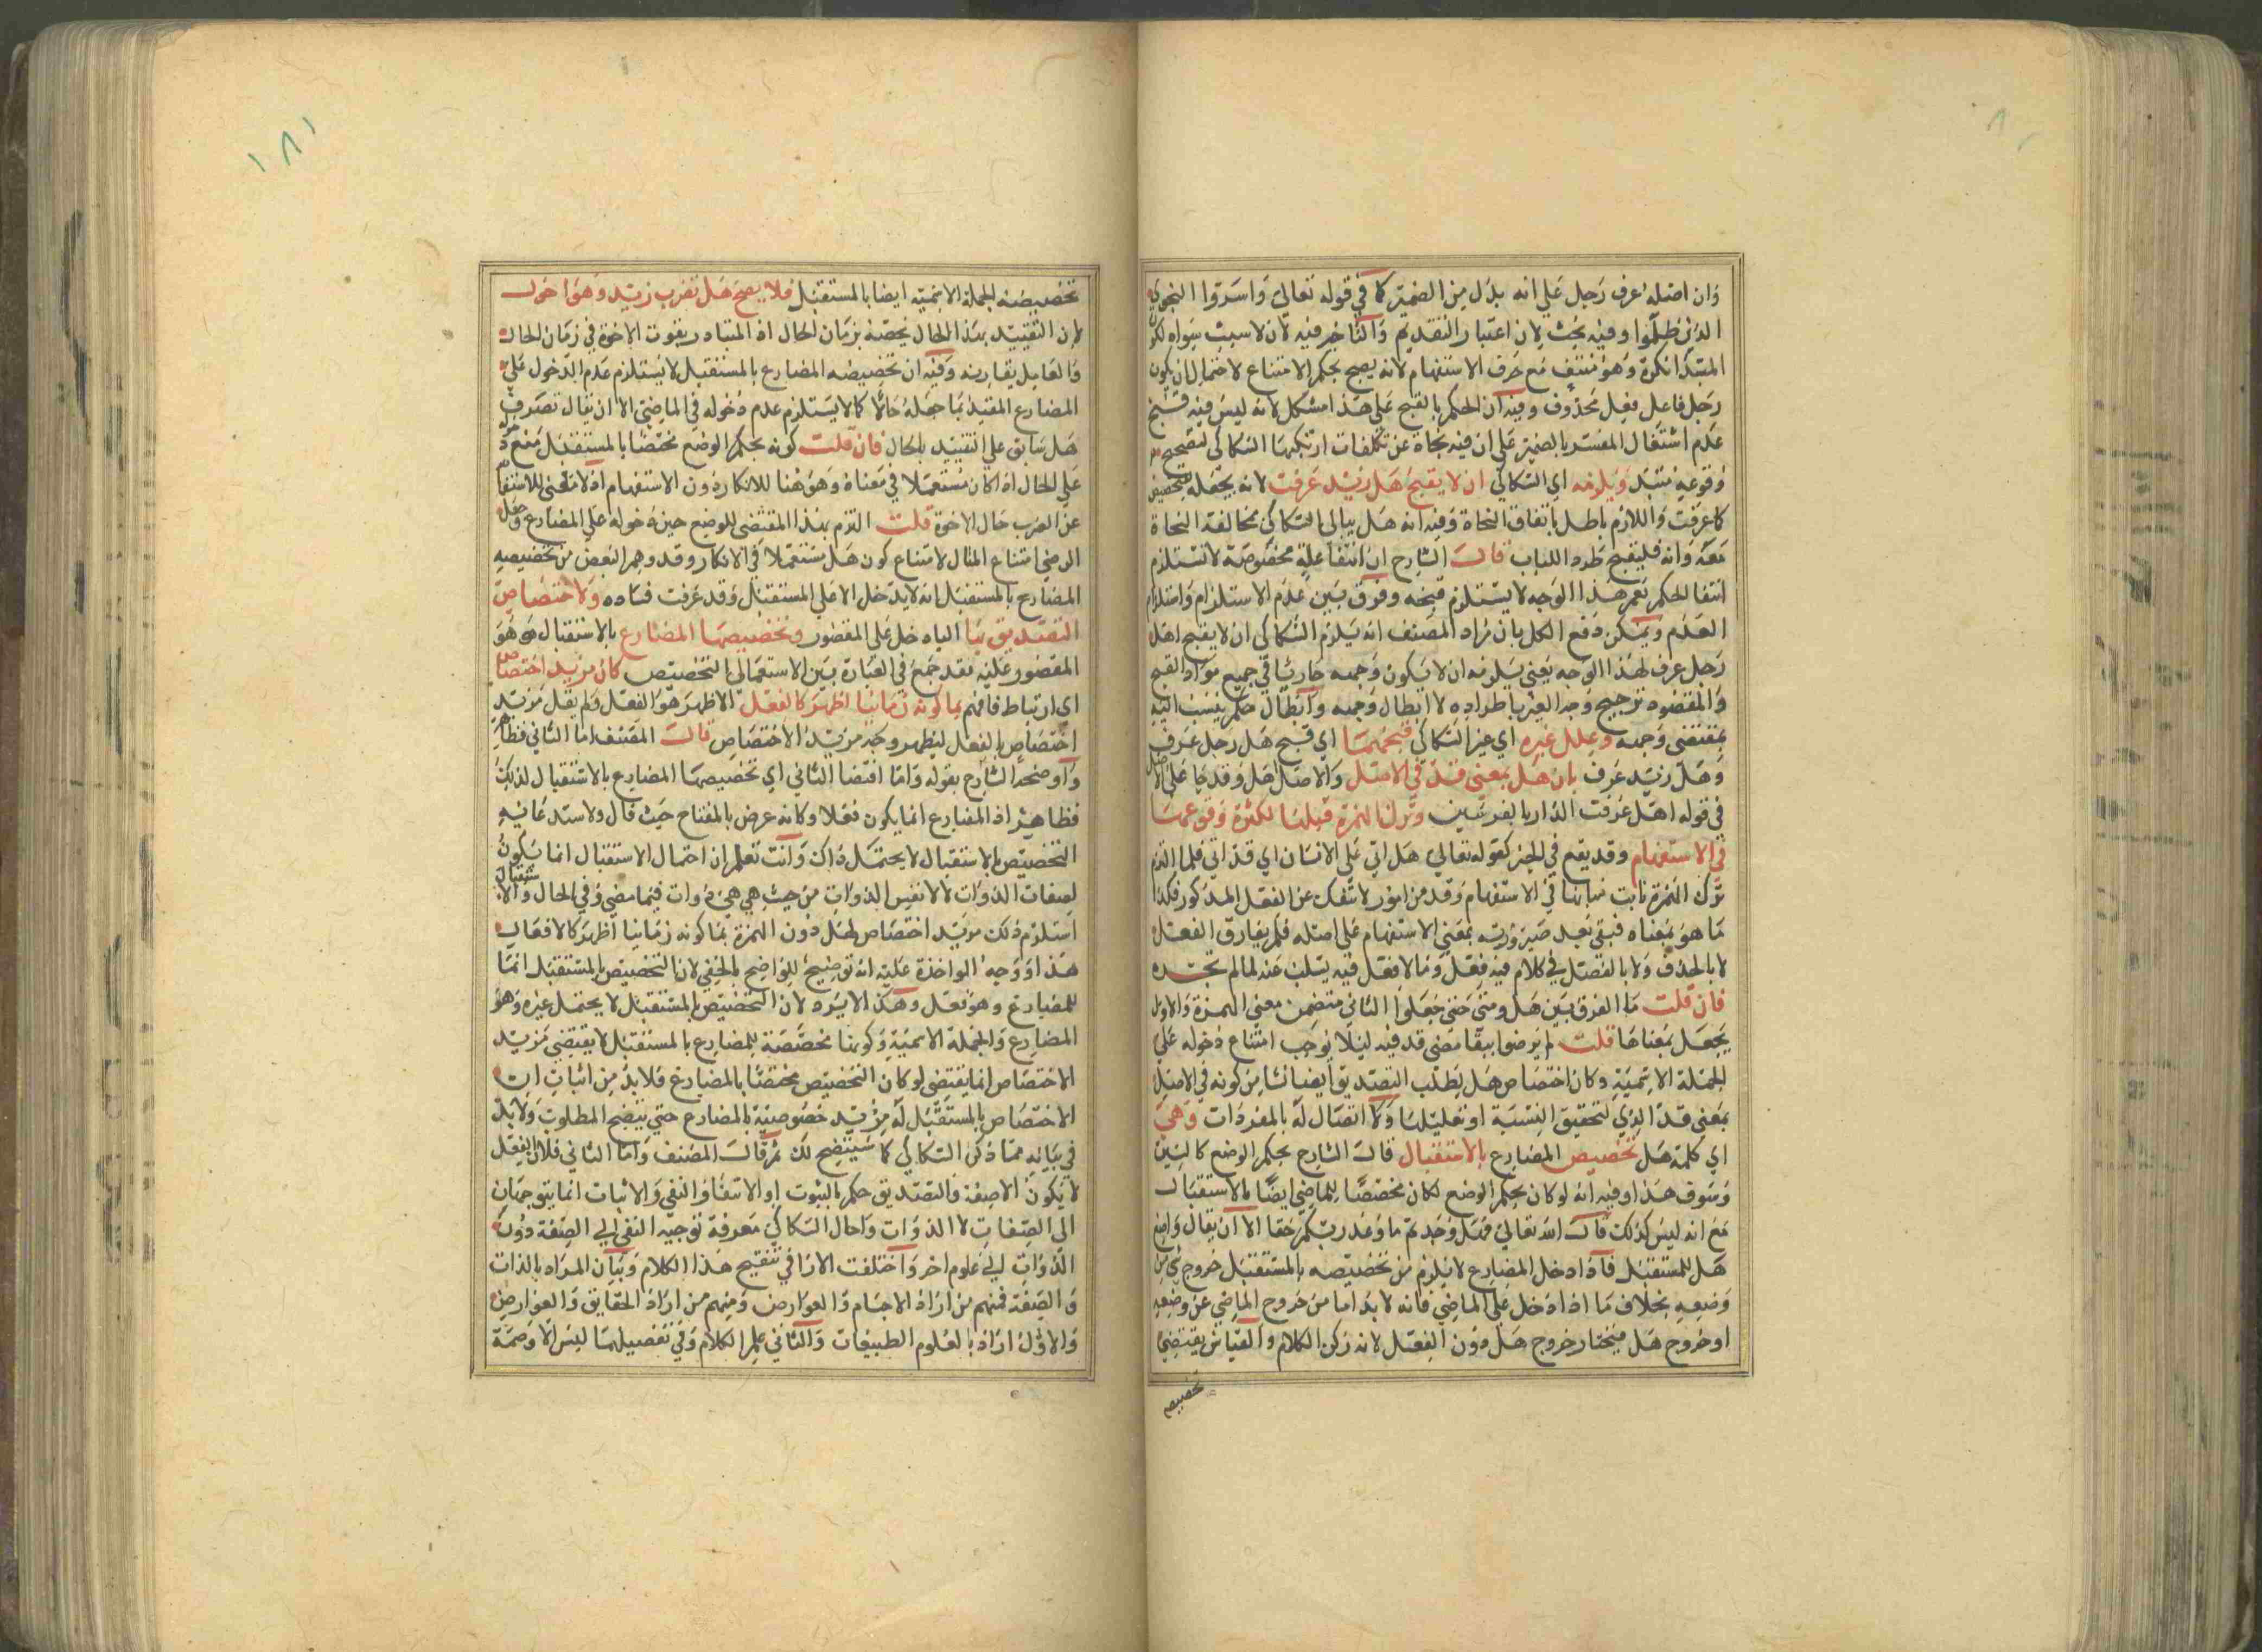 وان اصله عرف رجل على انه بدل من الضمير كما في قوله تعالى واسروا النجوى
الذين ظلموا وفيه بحث لان اعتبار التقديم والتاخير فيه لان لا سبب سواه لكون
المبتدا نكرة وهو منتف مع حرف الاستفهام لانه يصح بحكم الامتناع لاحتمال ان يكون
رجل فاعل فعل محذوف وفيه ان الحكم بالقبح على هذا مشكل لانه ليس فيه قبح
عدم اشتغال المفسر بالضمير على ان فيه نجاة عن تكلفات ارتكبها السكاكي لتصحيح
وقوعه مبتدا ويلزمه اي السكاكي ان لا يقبح هل زيد عرفت لانه يجعله للتخصيص
كما عرفت واللازم باطل باتفاق النحاة وفيه انه هل يبالي السكاكي مخالفة النحاة
معه وانه فليقبح طرد اللباب قال الشارح ان انتفا علة مخصوصة لا تستلزم
انتفا الحكم نعم هذا الوجه لا يستلزم قبحه وفرق بين عدم الاستلزام واستلزام
العدم ويمكن دفع الكل بان مراد المصنف انه يلزم السكاكي ان لا يقبح اهل
رجل عرف لهذا الوجه يعني يلزمه ان لا يكون وجهه جاريا في جميع مواد القبح
والمقصود ترجيح وجه الغير باطراده لا ابطال وجهه وابطال حكم ينسب اليه
بمقتضى وجهه وعلل غيره اي غير السكاكي قبحهما اي قبح هل رجل عرف
وهل زيد عرف بان هل بمعنى قد في الاصل والاصل اهل وقد جا على الاصل
في قوله اهل عرفت الدار بالغرتين وترك الهمزة قبلها لكثرة وقوعها
في الاستفهام وقد يقع في الخبر كقوله تعالى هل اتى على الانسان اي قد اتى فلما التزم
ترك الهمزة نابت منابها في الاستفهام وقد من امور لا تنفك عن الفعل المذكور فكذا
ما هو بمعناه فبقي بعد صيرورته بمعنى الاستفهام على اصله فلم يفارق الفعل
لا بالحذف ولا بالفصل في كلام فيه فعل وما لا فعل فيه يسلب عنه لما لم تجده
فان قلت ما الفرق بين هل ومتى حتى جعلوا الثاني متضمن معنى الهمزة والاول
يجعل بمعناها قلت لم يرضوا ببقا معنى قد فيه ليلا يوجب امتناع دخوله على
الجملة الاسمية وكان اختصاص هل بطلب التصديق ايضا نشا من كونه في الاصل
بمعنى قد الذي لتحقيق النسبة او تقليلها ولا اتصال له بالمفردات وهي
اي كلمة هل تخصيص المضارع بالاستقبال قال الشارح بحكم الوضع كالسين
وسوف هذا وفيه انه لو كان بحكم الوضع لكان مخصصا للماضي ايضا بالاستقبال
مع انه ليس كذلك قال الله تعالى فهل وجدتم ما وعد ربكم حقا الا ان يقال وامتع
هل للمستقبل فاذا دخل المضارع لا يلزم من تخصيصه بالمستقبل خروج شي من
وضعه بخلاف ما اذا دخل على الماضي فانه لا بد اما من خروج الماضي عن وضعه
او خروج هل فيختار خروج هل دون الفعل لانه ركن الكلام والقياس يقتضي
تخصيصه
١٨١
تخصيصه الجملة الاسمية ايضا بالمستقبل فلا يصح هل تضرب زيد وهو اخوك
لان التقييد بهذا الحال يخصه بزمان الحال اذ المتبادر بفوت الاخوة في زمان الحال
والعامل يقارنه وفيه ان تخصيصه المضارع بالمستقبل لا يستلزم عدم الدخول على
المضارع المقيد بما جعله حالا كما لا يستلزم عدم دخوله في الماضي الا ان يقال تصرف
هل سابق على التقييد بالحال فان قلت كونه بحكم الوضع مختصا بالمستقبل منع دخوله
على الحال اذا كان مستعملا في معناه وهو هنا للانكار دون الاستفهام اذ لا معنى للاستفهام
عن الضرب حال الاخوة قلت التزم بهذا المقتضى للوضع حين دخوله على المضارع وجعل
الرضي امتناع المثال لامتناع كون هل مستعملا في الانكار وقد وهم البعض من تخصيصه
المضارع بالمستقبل انه لا يدخل الا على المستقبل وقد عرفت فساده ولاختصاص
التصديق بها الباء دخل على المقصور وتخصيصها المضارع بالاستقبال هو هو
المقصور عليه فقد جمع في العبارة بين الاستعمالي التخصيص كان مزيد اختصاص
اي ارتباط فافهم بما كونه زمانيا اظهر كالفعل الاظهر هو الفعل ولم يقل مزيد
اختصاص بالفعل ليظهر وجه مزيد الاختصاص قال المصنف اما الثاني فظاهر
واوضحه الشارح بقوله واما اقتضا الثاني اي تخصيصها المضارع بالاستقبال لذلك
فظاهر اذ المضارع انما يكون فعلا وكانه عرض بالمفتاح حيث قال ولاستدعائه
التخصيص بالاستقبال لا يحتمل ذاك وانت تعلم ان احتمال الاستقبال انما يكون
لصفات الذوات لا لانفس الذوات من حيث هي هي ذوات فيما مضى وفي الحال والاستقبال
استلزم ذلك مزيد اختصاص لهل دون الهمزة بما كونه زمانيا اظهر كالافعال
هذا ووجه المواخذة عليه انه توضيح للواضح بالخفي لان التخصيص بالمستقبل انما
للمضارع وهو فعل وهكذا لا يرد لان التخصيص بالمستقبل لا يحتمل غيره وهو
المضارع والجملة الاسمية وكونها مخصصة للمضارع بالمستقبل لا يقتضي مزيد
الاختصاص انما يقتضي لو كان التخصيص مختصا بالمضارع فلا بد من اثبات ان
الاختصاص بالمستقبل له مزيد خصوصية بالمضارع حتى يتضح المطلوب ولا بد
في بيانه مما ذكره السكاكي كما سيتضح لك ثم قال المصنف واما الثاني فلان الفعل
لا يكون الا صفة والتصديق حكم بالثبوت او الانتفاء والنفي والاثبات انما يتوجهان
الى الصفات لا الذوات واحال السكاكي معرفة توجيه النفي الى الصفة دون
الذوات الى علوم اخر واختلفت الارا في تنقيح هذا الكلام وبيان المراد بالذات
والصفة فمنهم من اراد الاجسام والعوارض ومنهم من اراد الحقايق والعوارض
والاول اراد بالعلوم الطبيعيات والثاني علم الكلام وفي تفصيلهما ليس الا وصمة